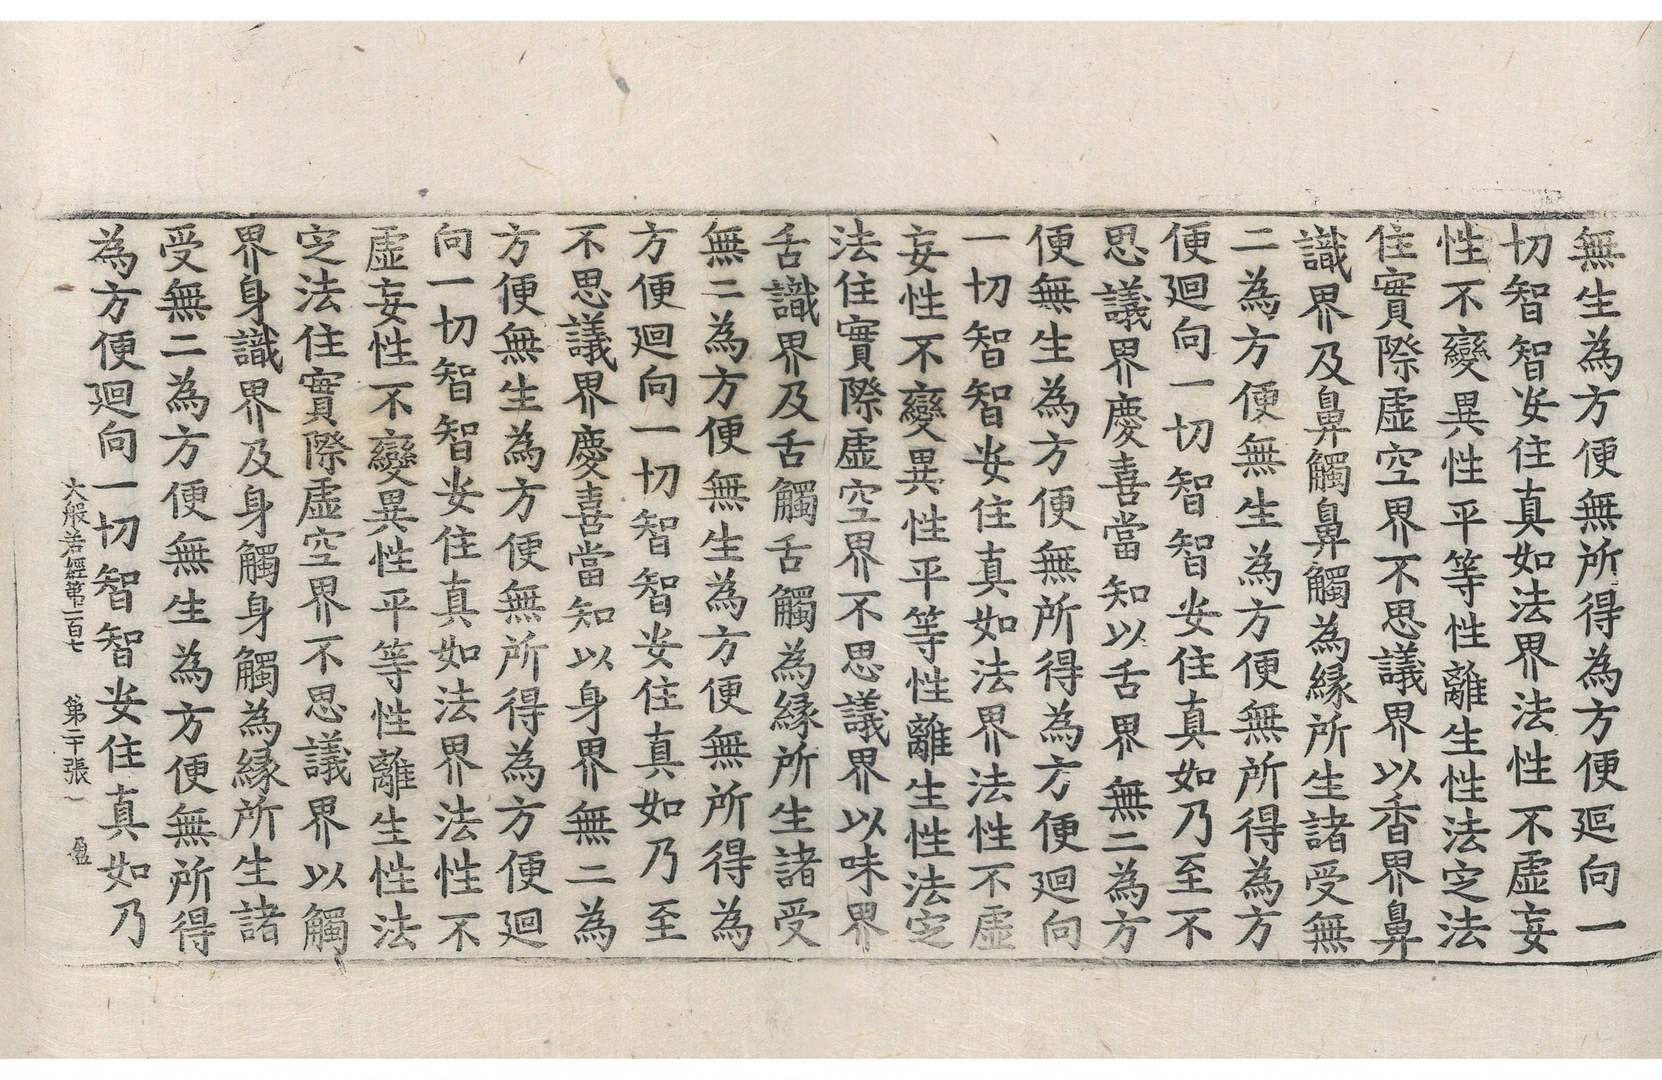 無生為方便無所得為方便廻向一
切智智安住真如法界法性不虛妄
性不變異性平等性離生性法定法
住實際虛空界不思議界以香界鼻
識界及鼻觸鼻觸為緣所生諸受無
二為方便無生為方便無所得為方
便廻向一切智智安住真如乃至不
思議界慶喜當知以舌界無二為方
便無生為方便無所得為方便廻向
一切智智安住真如法界法性不虛
妄性不變異性平等性離生性法定
法住實際虛空界不思議界以味界
舌識界及舌觸舌觸為緣所生諸受
無二為方便無生為方便無所得為
方便廻向一切智智安住真如乃至
不思議界慶喜當知以身界無二為
方便無生為方便無所得為方便廻
向一切智智安住真如法界法性不
虛妄性不變異性平等性離生性法
定法住實際虛空界不思議界以觸
界身識界及身觸身觸為緣所生諸
受無二為方便無生為方便無所得
為方便廻向一切智智安住真如乃
大般若經第一百七 第二十張 盈